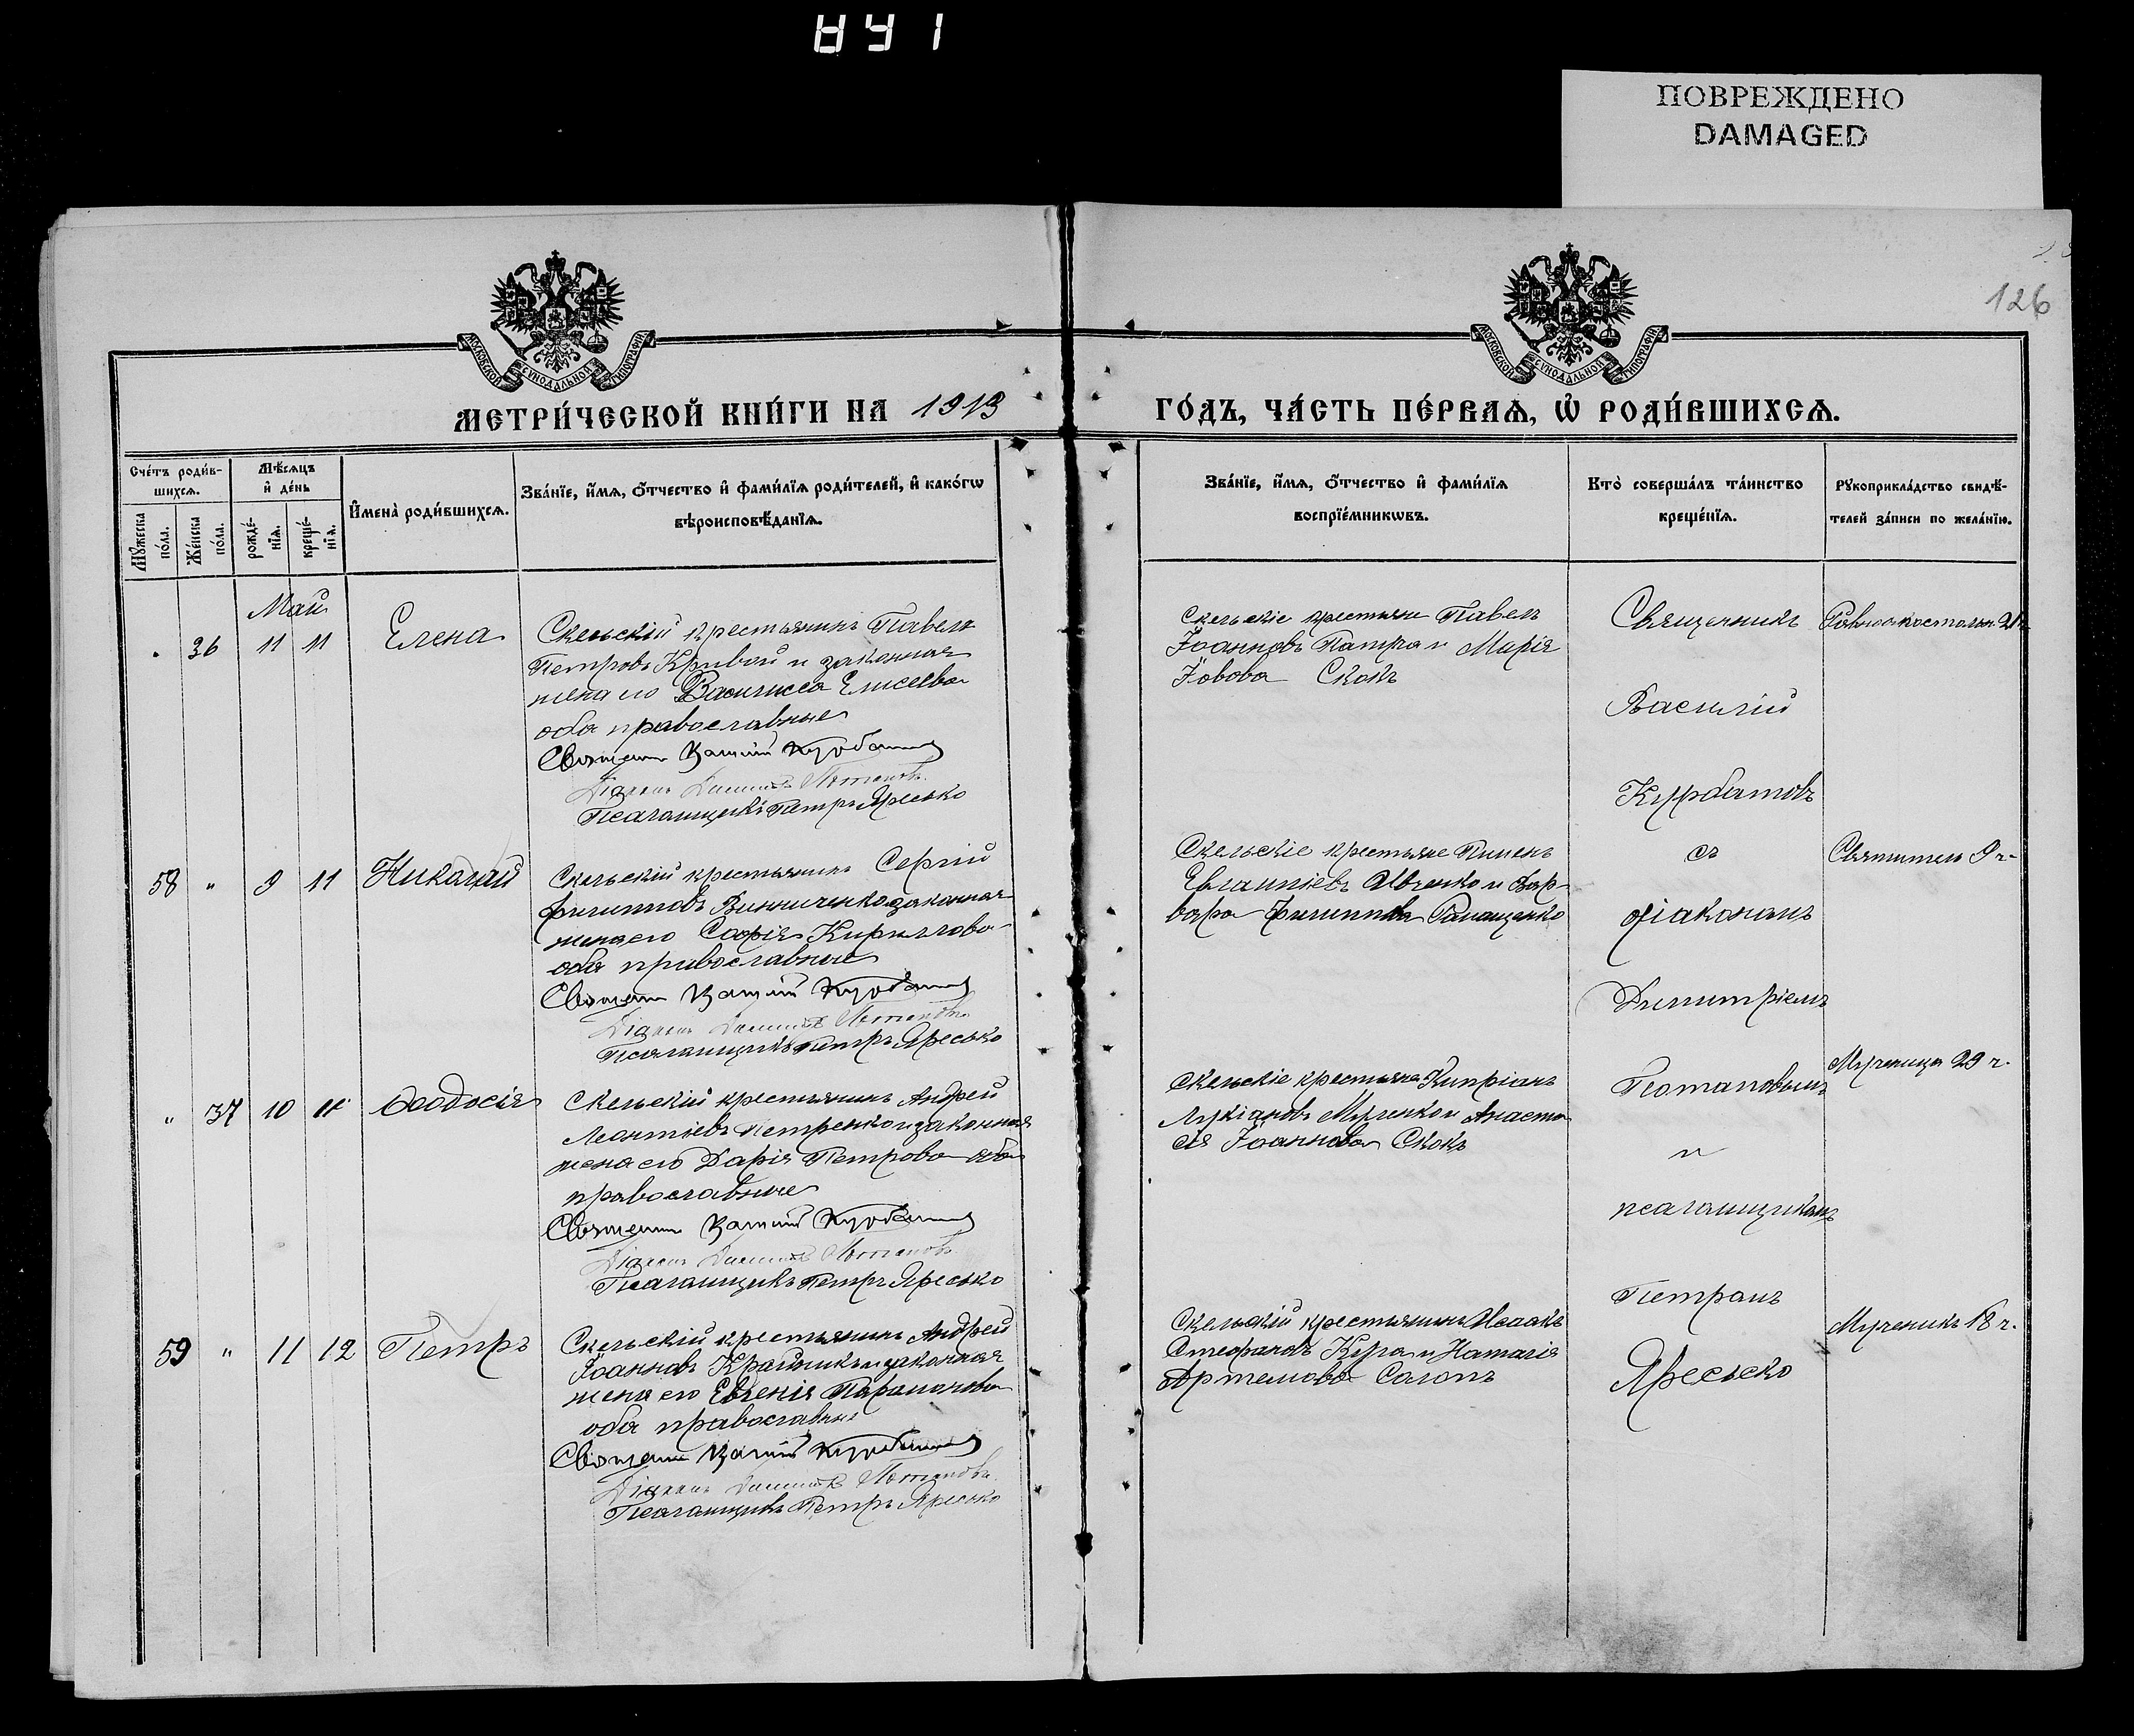 ПОВРЕЖДЕНО
DAMAGED
126
МОСКОВСКОЙ СУНОДАЛЬНОЙ ТИПОГРАФІИ
МОСКОВСКОЙ СУНОДАЛЬНОЙ ТИПОГРАФІИ
МЕТРИ́ЧЕСКОЙ КНИ́ГИ НА 1913
ГО́ДЪ, ЧА́СТЬ ПЕ́РВАѦ, Ѡ҆ РОДИ́ВШИХСѦ.
Сче́тъ роди́в-
шихсѧ.
Мꙋ́жеска по́ла.
Же́нска по́ла.
Мѣ́сѧцъ
и҆ де́нь
рожде́-
нїѧ.
креще́-
нїѧ.
И҆мена̀ роди́вшихсѧ.
Зва́нїе, и҆́мѧ, ѻ҆́тчество и҆ фами́лїѧ роди́телей, и҆ како́гѡ
вѣроисповѣ́данїѧ.
Зва́нїе, и҆́мѧ, ѻ҆́тчество и҆ фами́лїѧ
воспрїе́мникѡвъ.
Кто̀ соверша́лъ та́инство
креще́нїѧ.
Рꙋкоприкла́дство свидѣ́-
телей за́писи по жела́нїю.
Май
36 11 11 Елена
Скельскій крестьянинъ Павелъ
Петровъ Кривой и законная
жена его Василисса Елисеева
оба православные
Священ Василій Курбатовъ
Діаконъ Димитрій Потаповъ
Псаломщикъ Петръ Яресько
Скельскіе крестьяне Павелъ
Іоанновъ Патра и Марія
Іовова Скокъ
Священникъ
Василій
Курбатовъ
съ
діакономъ
Димитріемъ
Потаповымъ
и
псаломщикомъ
Петромъ
Яресько
Равноапостольн. 21 ч.
58 " 9 11 Николай
Скельскій крестьянинъ Сергій
Филипповъ Винниченко и законная
жена его Софія Кириллова
оба православные
Священ Василій Курбатовъ
Діаконъ Димитрій Потаповъ
Псаломщикъ Петръ Яресько
Скельскіе крестьяне Пименъ
Евлампіевъ Ивченко и Вар-
вара Филиппова
Святителя 9 ч.
" 37 10 11 Ѳеодосія
Скельскій крестьянинъ Андрей
Леонтіевъ Петренко и законная
жена его Дарія Петрова оба
православные
Священ Василій Курбатовъ
Діаконъ Димитрій Потаповъ
Псаломщикъ Петръ Яресько
Скельскіе крестьяне Кипріанъ
Лукіановъ и Анаста
сія Іоаннова Скокъ
Мученица 29 ч.
59 " 11 12 Петръ
Скельскій крестьянинъ Андрей
Іоанновъ Крайникъ и законная
жена его Евгенія Парамонова
оба православные
Священ Василій Курбатовъ
Діаконъ Димитрій Потаповъ
Псаломщикъ Петръ Яресько
Скельскій крестьянинъ Исаакъ
Стефановъ Кура и Наталія
Артемова Солопъ
Мученикъ 18 ч.